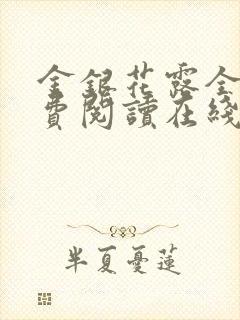 金銀花露全
費閱讀在綫
半夏憂蓮